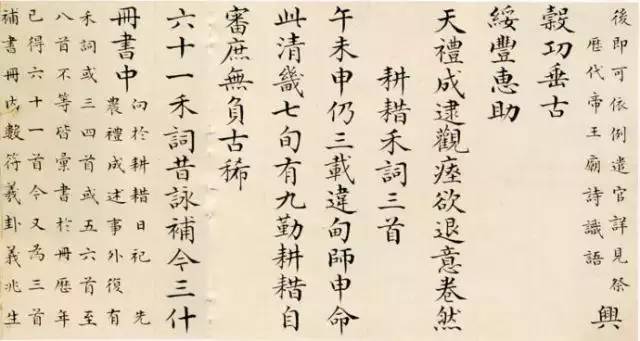 後即可依例遣官詳見祭
歷代帝王廟詩識語
興
穀功垂古
綏豐惠助
天禮成逮觀瘞欲退意卷然
耕耤禾詞三首
午未申仍三載違甸師申命
此清畿七旬有九勤耕耤自
審庶無負古稀
六十一禾詞昔詠補今三什
冊書中
向於耕耤日祀 先
農禮成述事外復有
禾詞或三四首或五六首至
八首不等皆彙書於冊歷年
已得六十一首今又為三首
補書冊內數符羲卦義兆生